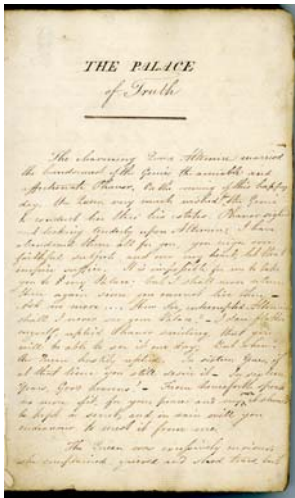 THE PALACE
of Truth
The charming Queen Altemire married
the handsomest of the Genii the amiable and
affectionate Phanor. On the evening of this happy
day, the Queen very much wished the Genie
to conduct her thro his estates. Phanor sighed
and looking tenderly upon Altemire, I have
abandoned them all for you, you reign over
faithful subjects and over my heart, let that
empire suffice. It is impossible for me to take
you to my Palace; but I shall never return
there again since you cannot live there
Ask no more How, she interrupted Altemire
shall I never see your Palace? I dare flatter
myself, replied Phanor smiling that you
will be able to see it one day. But when?
the Queen hastily replied. In sixteen Years, if
at that time you still desire it. In sixteen
Years, Good heavens! From henceforth speak
no more of it, for your peace and
to keep a secret, and in vain will you
endeavour to meet it from me.
The Queen was excessively curious
she complained, and shed tears, but